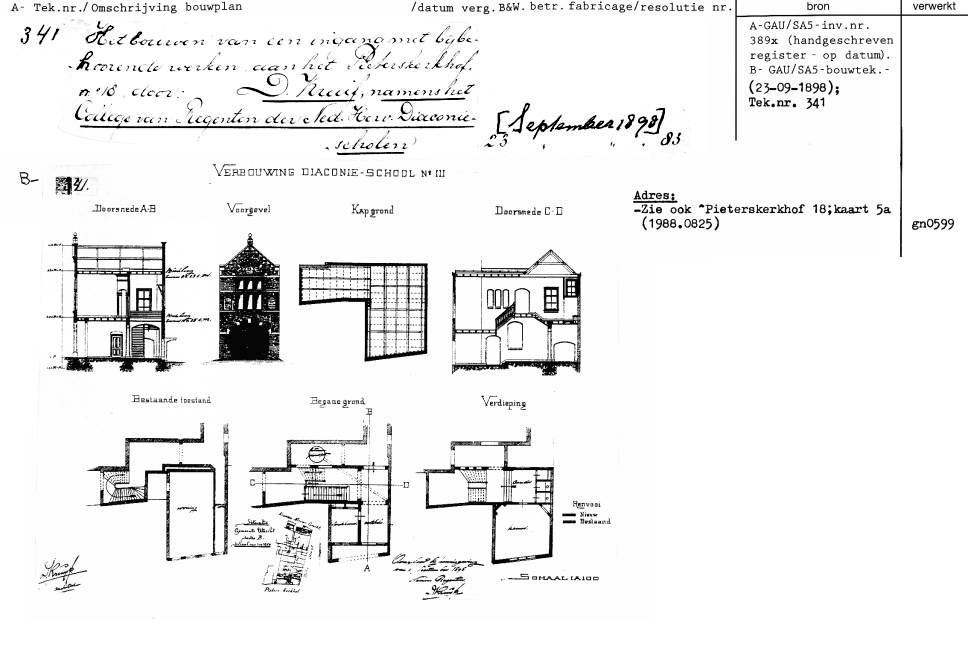 A- Tek.nr./Omschrijving bouwplan /datum verg.B&W. betr. fabricage/resolutie nr. bron verwerkt
341 Het bouwen van een ingang met bijbe-
hoorende werken aan het Pieterskerkhof,
nº 18, door: D. Kruijf, namens het
College van Regenten der Ned. Herv. Diaconie-
scholen
[September 1898]
23 " " 83
A-GAU/SA5-inv.nr.
389x (handgeschreven
register - op datum).
B- GAU/SA5-bouwtek.-
(23-09-1898);
Tek.nr. 341
B- 341.
VERBOUWING DIACONIE-SCHOOL Nº III
Adres:
-Zie ook "Pieterskerkhof 18;kaart 5a
(1988.0825)
gn0599
Doorsnede A-B Voorgevel Kapgrond Doorsnede C-D
Bestaande toestand Begane grond Verdieping
B
C D
A
woning
Situatie
Gemeente Utrecht
Pieters kerkhof
Renvooi
Nieuw
Bestaand
SCHAAL 1 A 100
DKruijf